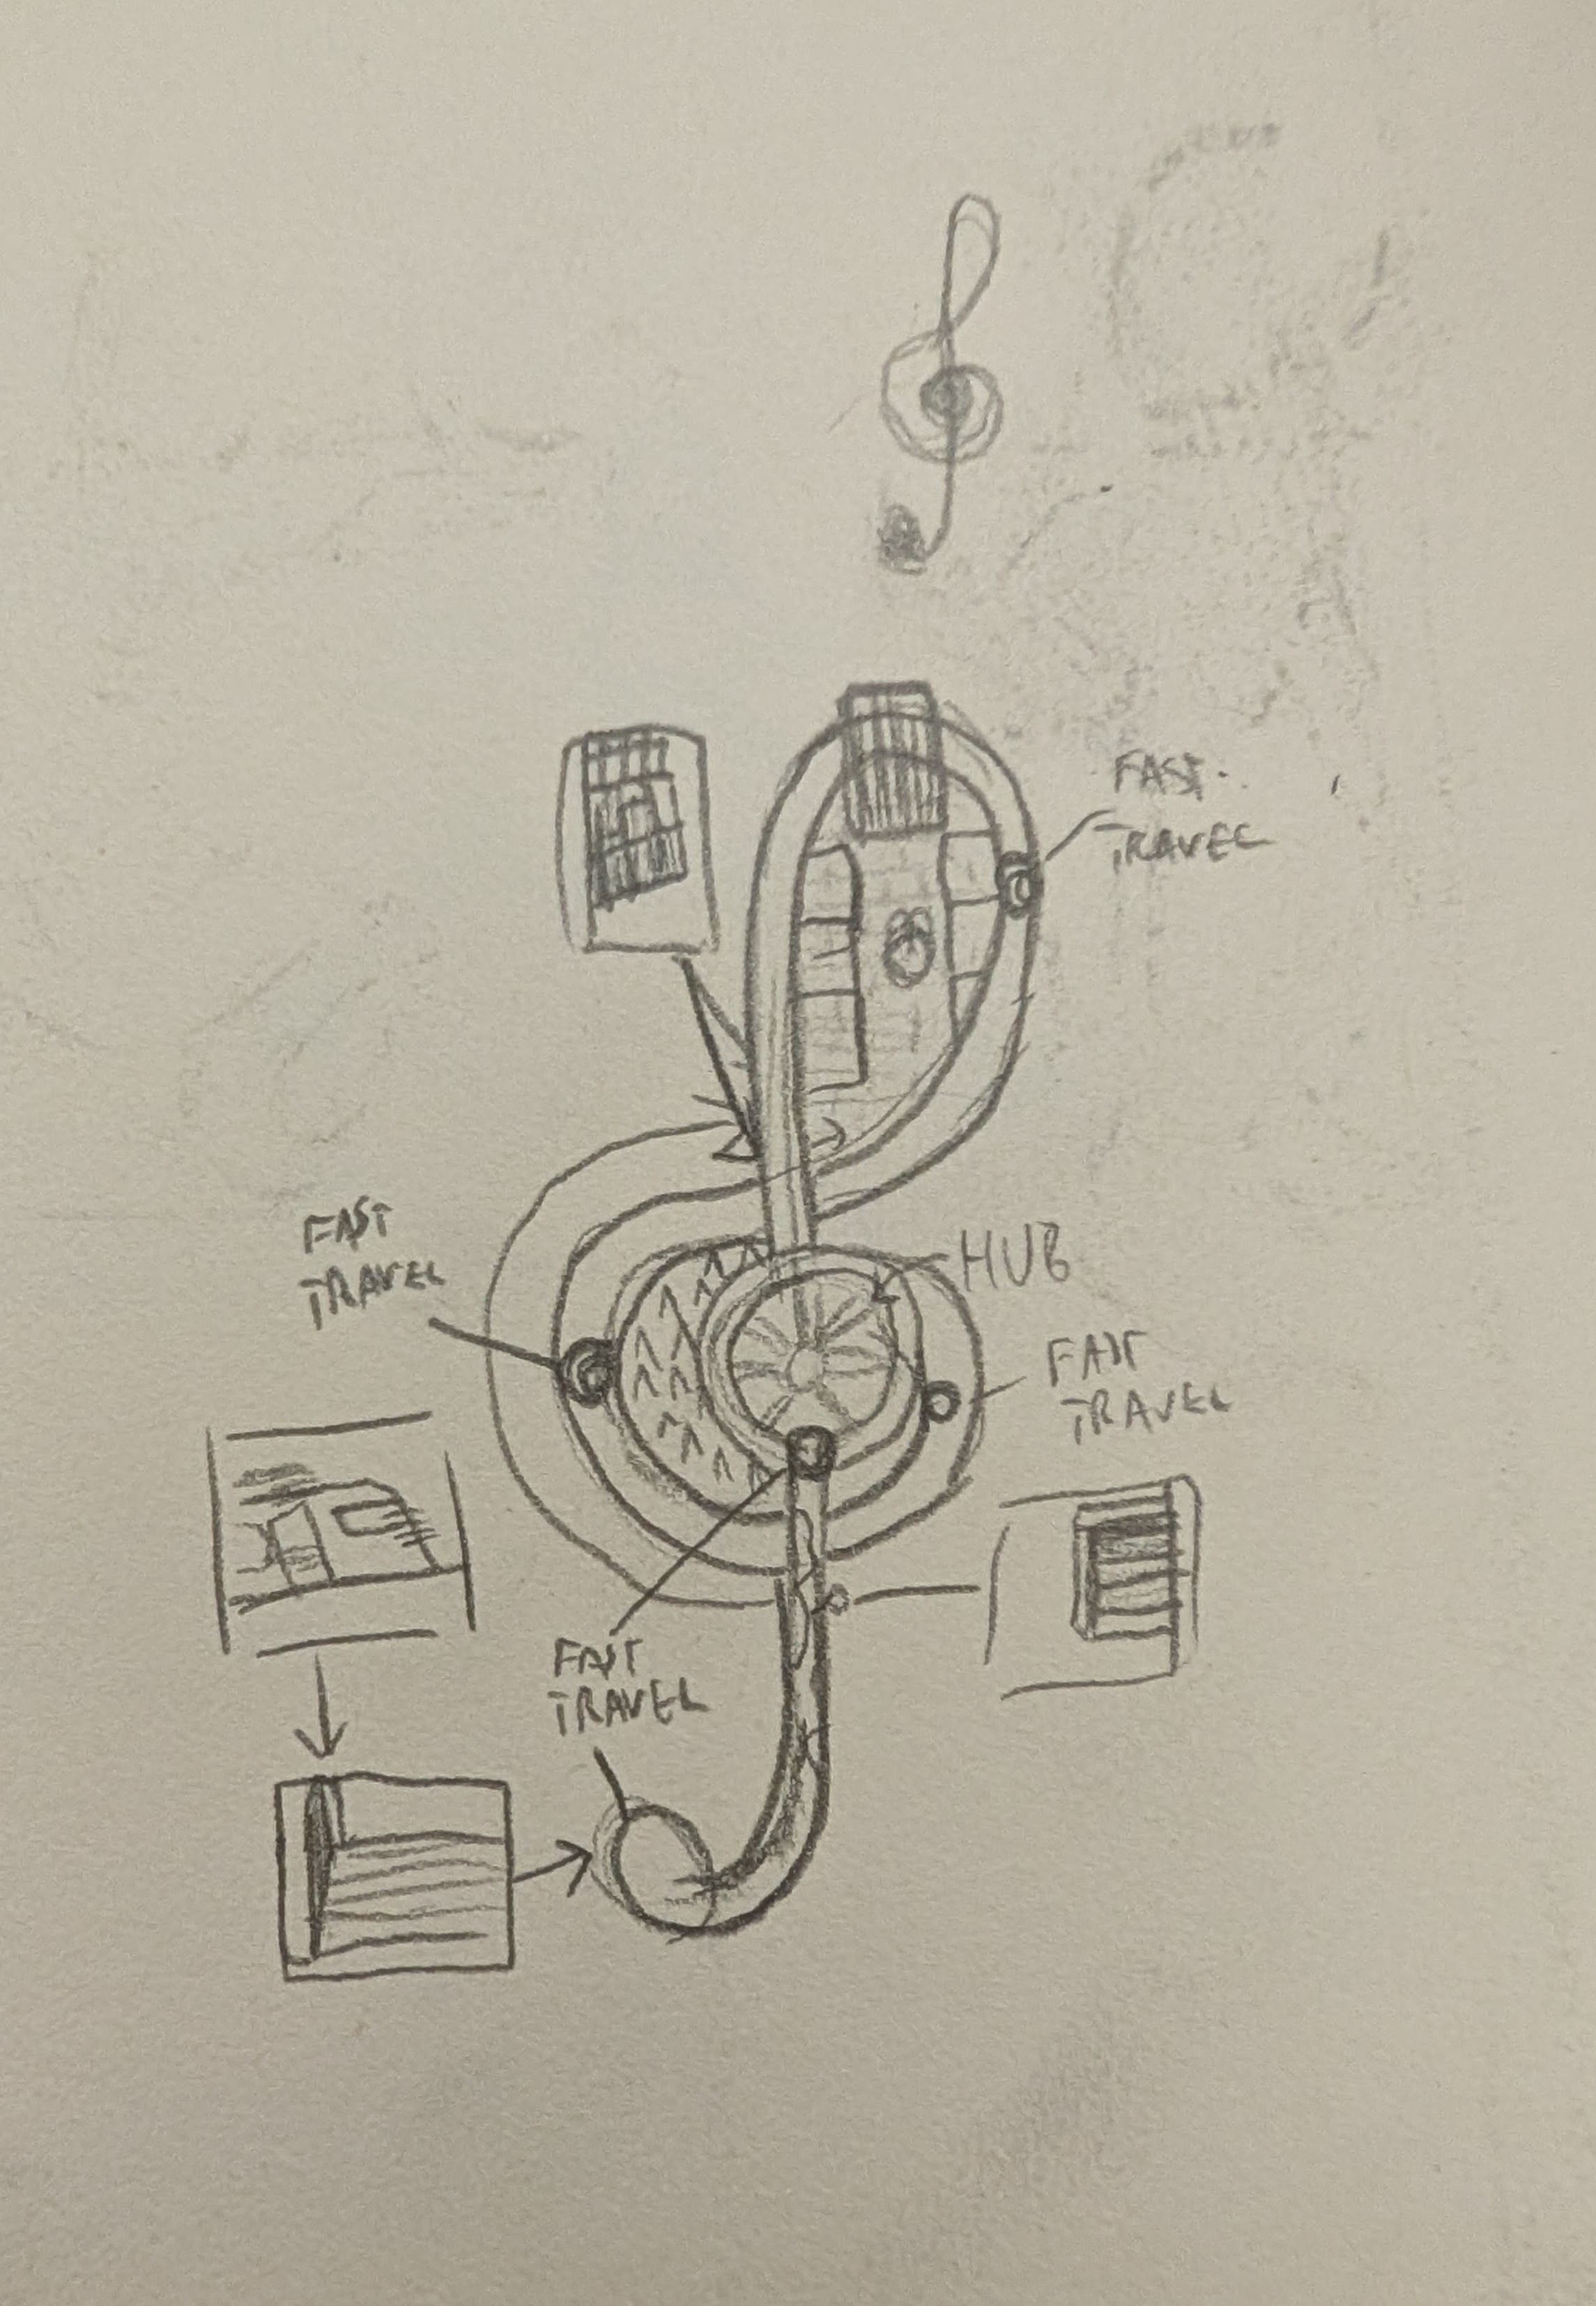 FAST
TRAVEL
FAST
TRAVEL
HUB
FAST
TRAVEL
FAST
TRAVEL